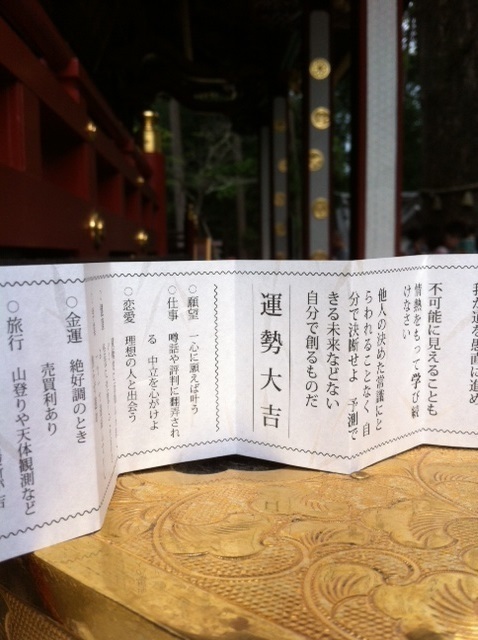 我が道を愚直に進め
不可能に見えることも
情熱をもって学び続
けなさい
他人の決めた常識にと
らわれることなく 自
分で決断せよ 予測で
きる未来などない
自分で創るものだ
運勢大吉
○願望 一心に願えば叶う
○仕事 噂話や評判に翻弄され
る 中立を心がけよ
○恋愛 理想の人と出会う
○金運 絶好調のとき
売買利あり
○旅行 山登りや天体観測など
吉